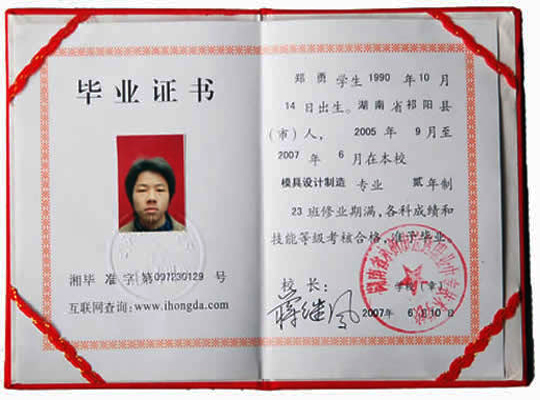 毕业证书
湘毕 准字第091230129 号
互联网查询:www.ihongda.com
郑勇学生1990 年10月
14日出生。湖南省祁阳县
(市)人, 2005 年 9月至
2007 年 6月在本校
模具设计制造 专业 贰年制
23 班修业期满,各科成绩和
技能等级考核合格,准予毕业。
校 长:
蒋继凤
学校(章)
2007年 6月10日